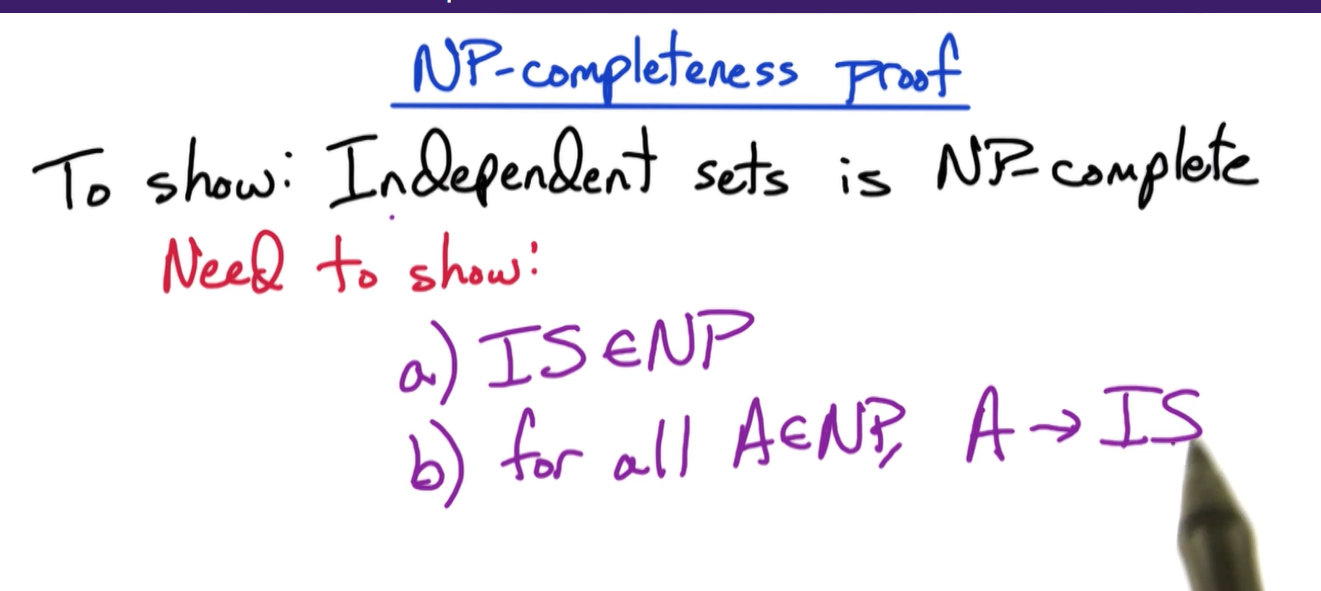 NP-completeness proof
To show: Independent sets is NP-complete
Need to show:
a) IS ∈ NP
b) for all A∈NP, A → IS